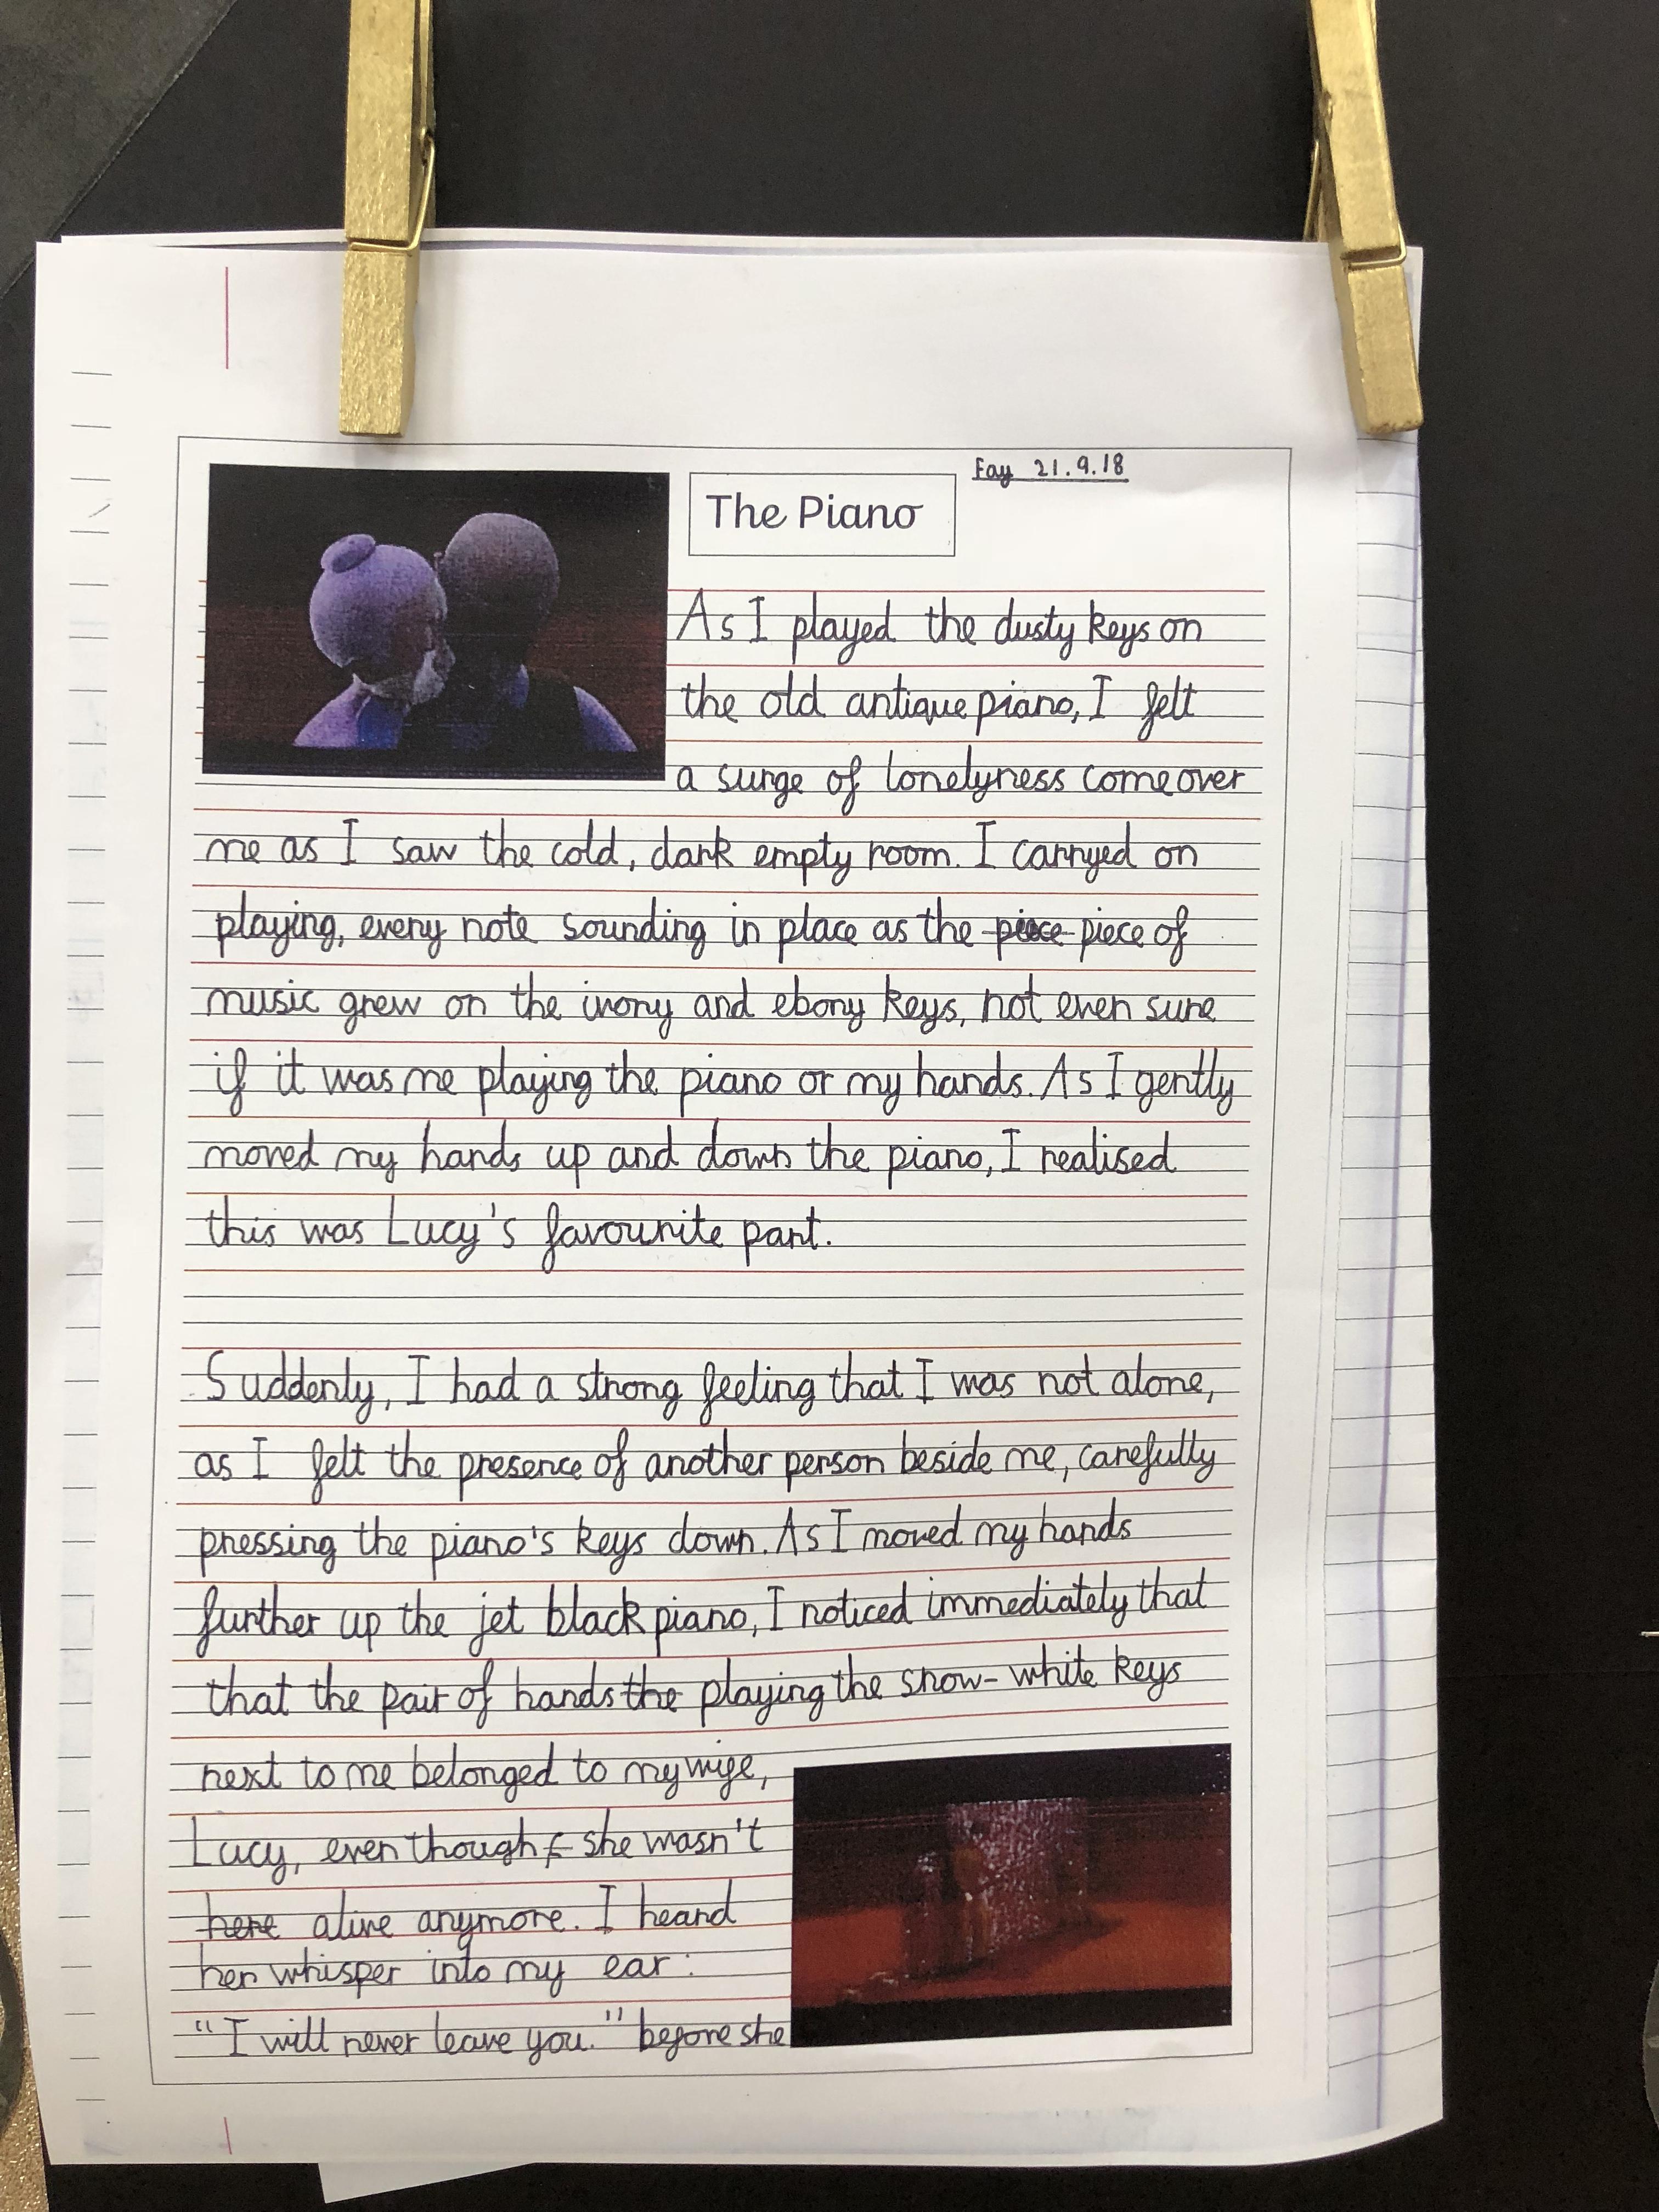 Fay 21.9.18
The Piano
As I played the dusty keys on
the old antique piano, I felt
a surge of lonelyness come over
me as I saw the cold, dark empty room. I carryed on
playing, every note sounding in place as the piece piece of
music grew on the ivory and ebony keys, not even sure
if it was me playing the piano or my hands. As I gently
moved my hands up and down the piano, I realised
this was Lucy's favourite part.
Suddenly, I had a strong feeling that I was not alone,
as I felt the presence of another person beside me, carefully
pressing the piano's keys down. As I moved my hands
further up the jet black piano, I noticed immediately that
that the pair of hands the playing the snow-white keys
next to me belonged to my wife,
Lucy, even though she wasn't
here alive anymore. I heard
her whisper into my ear:
"I will never leave you." before she